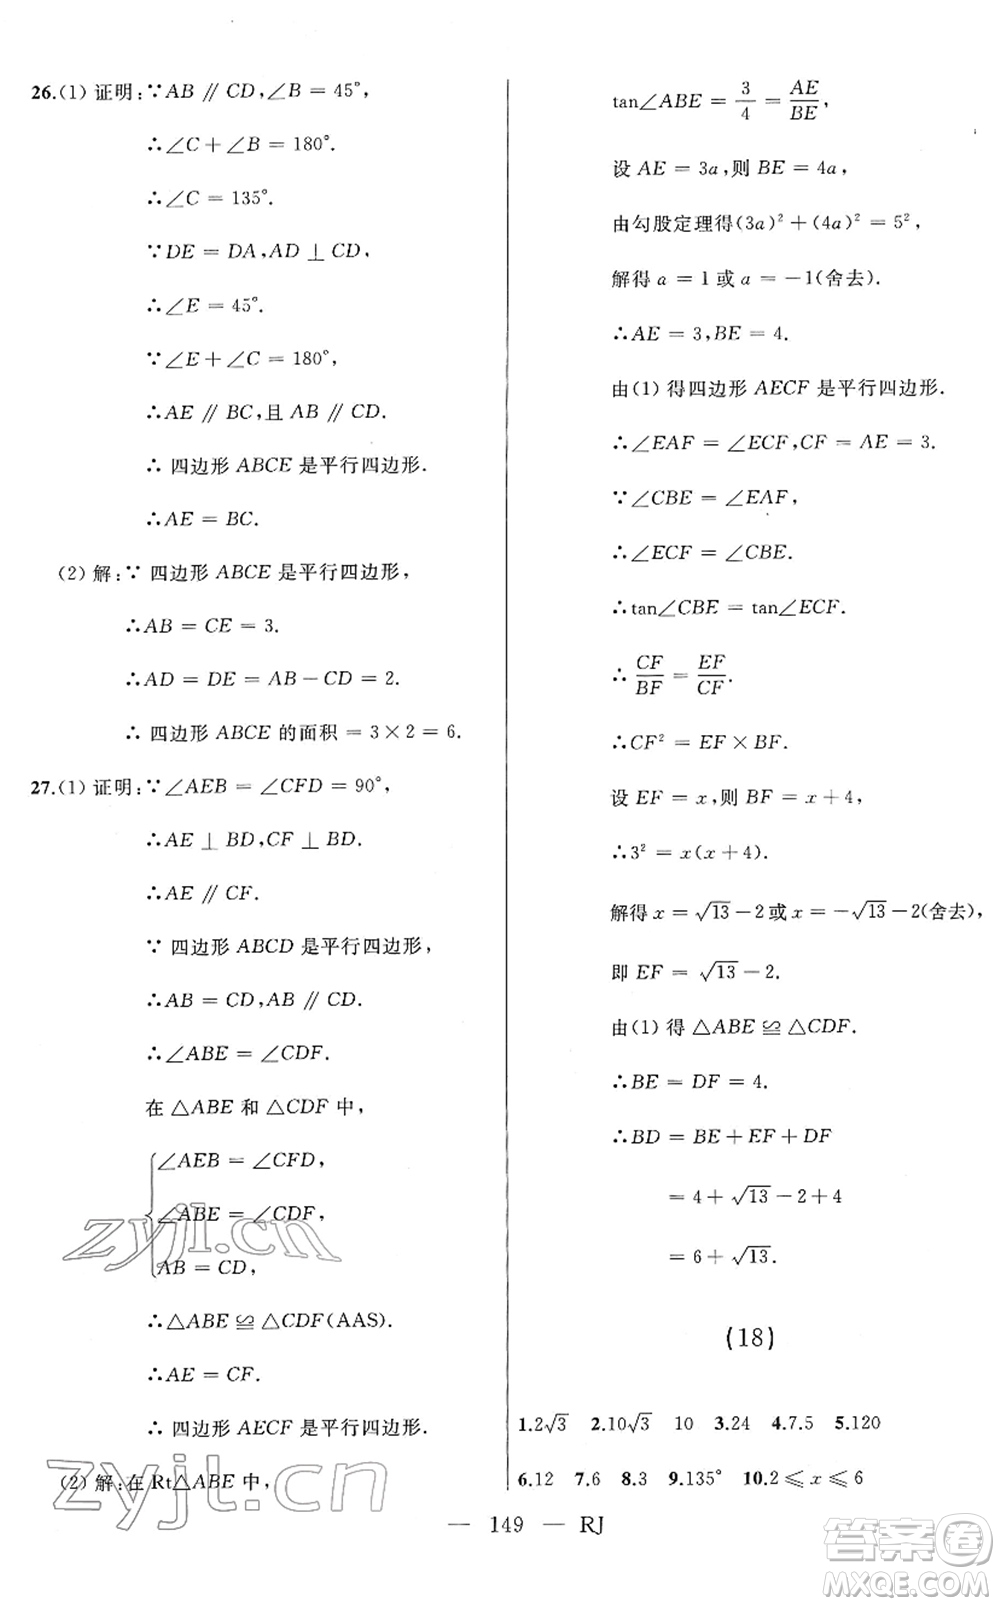 26.(1) 证明:∵AB∥CD,∠B=45°,
∴∠C+∠B=180°.
∴∠C=135°.
∵DE=DA,AD⊥CD,
∴∠E=45°.
∵∠E+∠C=180°,
∴AE∥BC,且 AB∥CD.
∴四边形 ABCE 是平行四边形.
∴AE=BC.
(2) 解:∵四边形 ABCE 是平行四边形,
∴AB=CE=3.
∴AD=DE=AB-CD=2.
∴四边形 ABCE 的面积=3×2=6.
27.(1) 证明:∵∠AEB=∠CFD=90°,
∴AE⊥BD,CF⊥BD.
∴AE∥CF.
∵四边形 ABCD 是平行四边形,
∴AB=CD,AB∥CD.
∴∠ABE=∠CDF.
在△ABE 和△CDF 中,
∠AEB=∠CFD,
∠ABE=∠CDF,
AB=CD,
∴△ABE≌△CDF(AAS).
∴AE=CF.
∴四边形 AECF 是平行四边形.
(2) 解:在 Rt△ABE 中,
tan∠ABE=3/4=AE/BE,
设 AE=3a,则 BE=4a,
由勾股定理得(3a)²+(4a)²=5²,
解得 a=1 或 a=-1(舍去).
∴AE=3,BE=4.
由(1) 得四边形 AECF 是平行四边形.
∴∠EAF=∠ECF,CF=AE=3.
∵∠CBE=∠EAF,
∴∠ECF=∠CBE.
∴tan∠CBE=tan∠ECF.
∴CF/BF=EF/CF.
∴CF²=EF×BF.
设 EF=x,则 BF=x+4,
∴3²=x(x+4).
解得 x=√13-2 或 x=-√13-2(舍去),
即 EF=√13-2.
由(1) 得△ABE≌△CDF.
∴BE=DF=4.
∴BD=BE+EF+DF
=4+√13-2+4
=6+√13.
(18)
1.2√3 2.10√3 10 3.24 4.7.5 5.120
6.12 7.6 8.3 9.135° 10.2≤x≤6
— 149 — RJ
zyjl.cn
zyjl.cn
答案卷
MXQE.COM